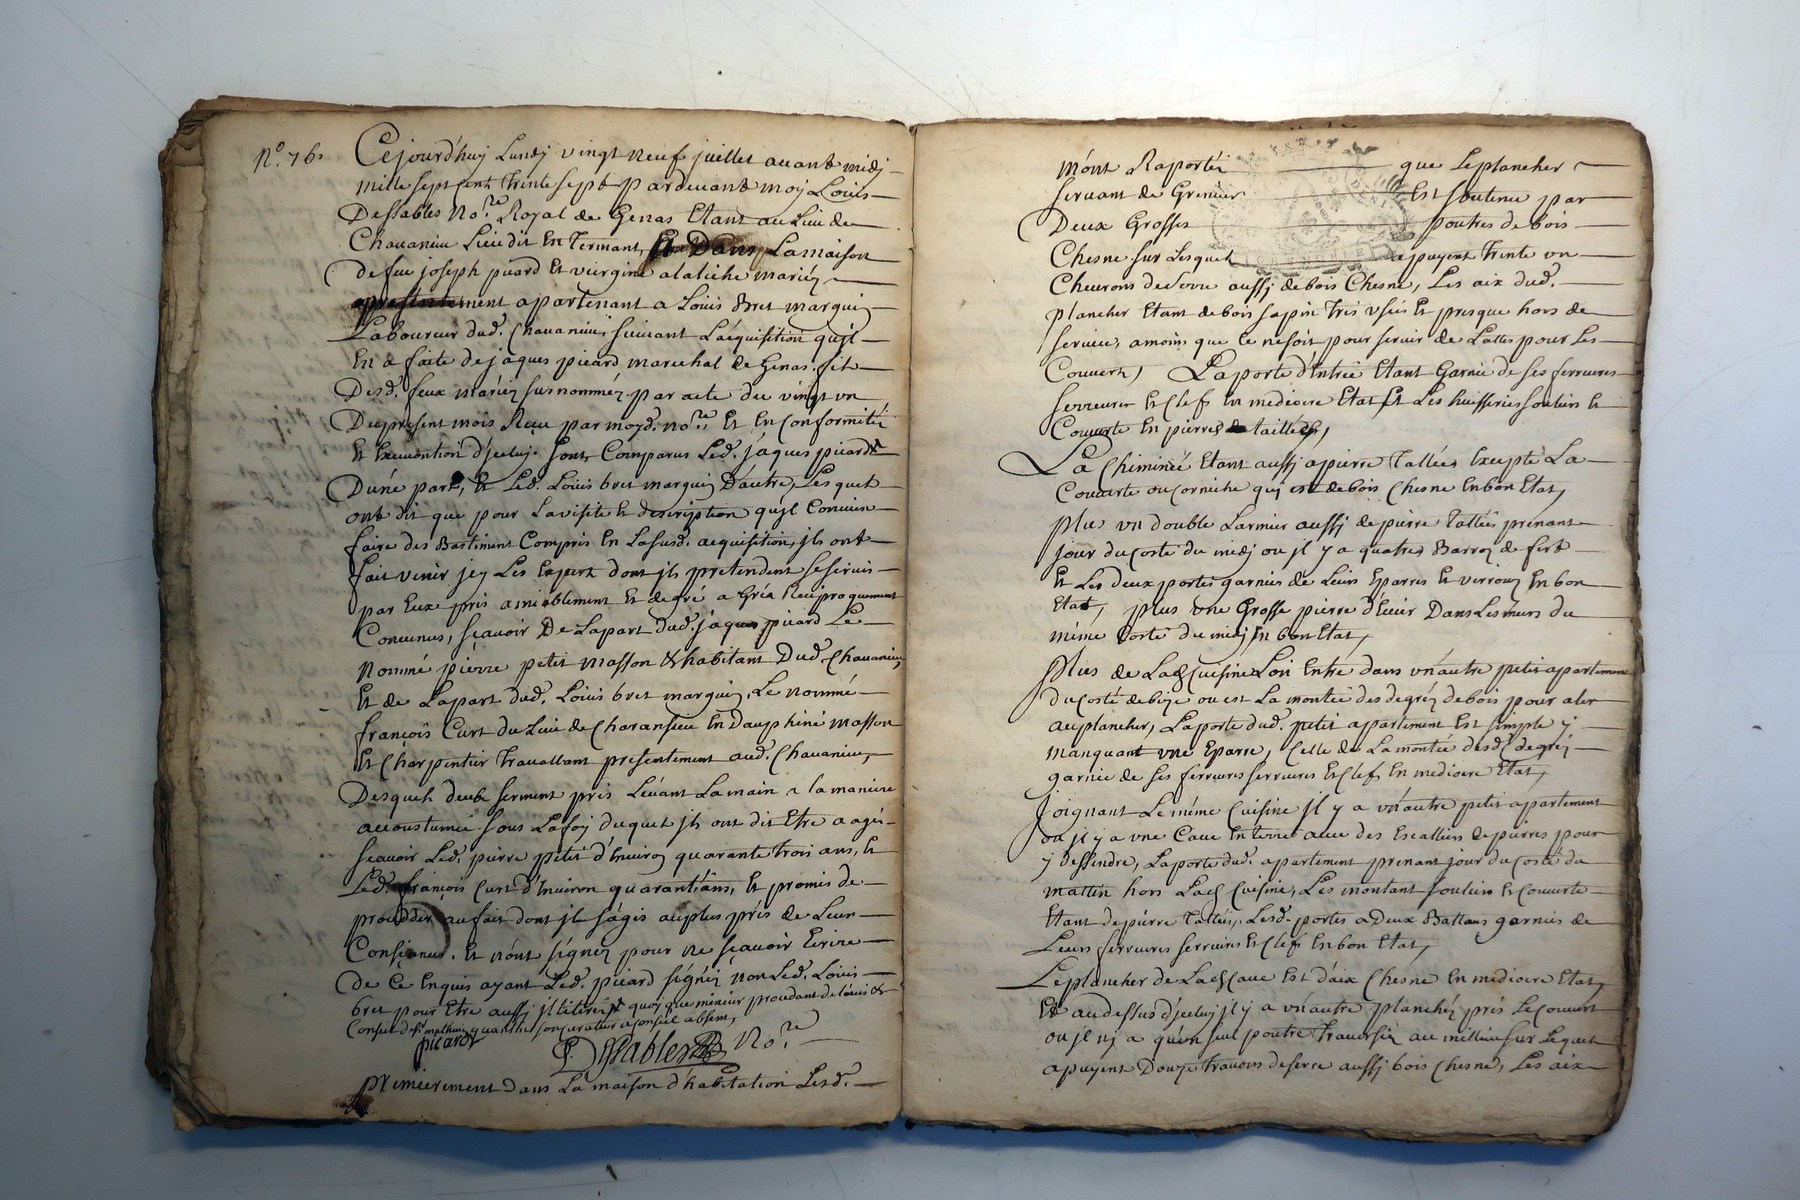 N.º 76.
Cejourd'huy Lundy vingt neuf juillet avant midy
mille sept cent trente sept pardevant moy Louis
Dessables No.re Royal de Genas Etant au Lieu de
Chavanieu Lieu dit En Termant, Et Dans La maison
de feu joseph picard Et viergine alaliche mariéz
apresentement apartenant a Louis Bret marquiz
Laboureur dud. Chavanieu, suivant L'aequisition qu'jl
En a faite de jaques picard marechal de Genas, fils
Desd. feux mariéz susnomméz par acte du vingt un
Du present mois Reçu par moyd. no.re Et En Conformité
Et Execution d'jceluy. sont Comparus Led. jaques picard
D'une part, Et Led. Louis bret marquiz D'autre, Lesquels
ont dit que pour La visite Et description qu'jl Convien
faire des Bastiment Compris En La susd. aequisition, jls ont
fait venir jcy Les Expert dont jls pretendent se servir
par Eux pris amiablement Et de gré a Gré Reciproquement
Convenus, sçavoir De La part dud. jaques picard Le
Nommé pierre petit masson & habitant Dud. Chavanieu,
Et de La part dud. Louis bret marquiz, Le nommé
françois Curt du Lieu de Charansieu En Dauphiné masson
Et Charpentier Travallant presentement aud. Chavanieu,
Desquels deube serment pris Levant La main a la maniere
acoustumée sous La foy duquel jls ont dit Etre a agés
sçavoir Led. pierre petit d'Environ quarante trois ans, Et
Led. françois Curt d'Environ quarant'ans, Et promis de
proceder au fait dont jl s'agis au plus prés de Leur
Consiance. Et n'ont signéz pour ne sçavoir Ecrire
De Ce Enquis ayant Led. picard signéz non Led. Louis
bret pour Etre aussy jlliteré quoy que mineur procedant de l'avis &
Conseil d' mathieu son curateur a conseil absent,
picard
Dessables No.re
premierement Dans La maison d'habitation Lesd.
m'ont Raporté que Le plancher
servant de Grenier Est soutenu par
Deux Grosses poutres de bois
Chesne sur Lesquels apuyent Trente un
Cheurons de serve aussy de bois Chesne, Les aix dud.
plancher Etant de bois sapin Tres usés Et presque hors de
service, amoins que Ce ne soit pour servir de Lattes pour Les
Couverts, La porte d'Entrée Etant Garnie de ses ferrures
serreures Et Clefs En mediocre Etat Et Les huisseries soulier Et
Couverte En pierres de taillées,
La Chiminée Etant aussy a pierre Tallées Excepté La
Couverte ou Corniche qui est de bois Chesne En bon Etat,
plus un double Larmier aussy de pierre Tallées prenant
jour du costé du midy ou jl y a quatres Barroz de fert
Et Les deux portes garnies de Leurs Eparres Et verrouz En bon
Etat, plus une Grosse pierre d'Evier Dans Les murs du
même Costé du midy En bon Etat,
Plus de Lad. Cuisine L'on Entre dans un autre petit apartement
du costé de bize ou est La montée des degréz de bois pour aler
au plancher, La porte dud. petit apartement Est simple y
manquant une Eparre, Celle de La montée desd. degréz
garnie de ses ferrures serrures Et Clefs En mediocre Etat,
Joignant Le même Cuisine jl y a un autre petit apartement
ou jl y a une Cave En terre avec des Escalliers de pierres pour
y dessendre, La porte dud. apartement prenant jour du costé du
mattin hors Lad. Cuisine, Les montant soulier Et Couverte
Etant de pierre Tallées, Lesd. portes a Deux Battans garnies de
Leurs ferrures serrures Et Clefs En bon Etat,
Le plancher de Lad. Cave Est d'aix Chesne En mediocre Etat,
Et au dessus d'jceluy jl y a un autre planchéz prés Le Couvert
ou jl ny a qu'un seul poutre Traversiéz au millieu sur Lequel
apuyent Douze travons de serve aussy bois Chesne, Les aix